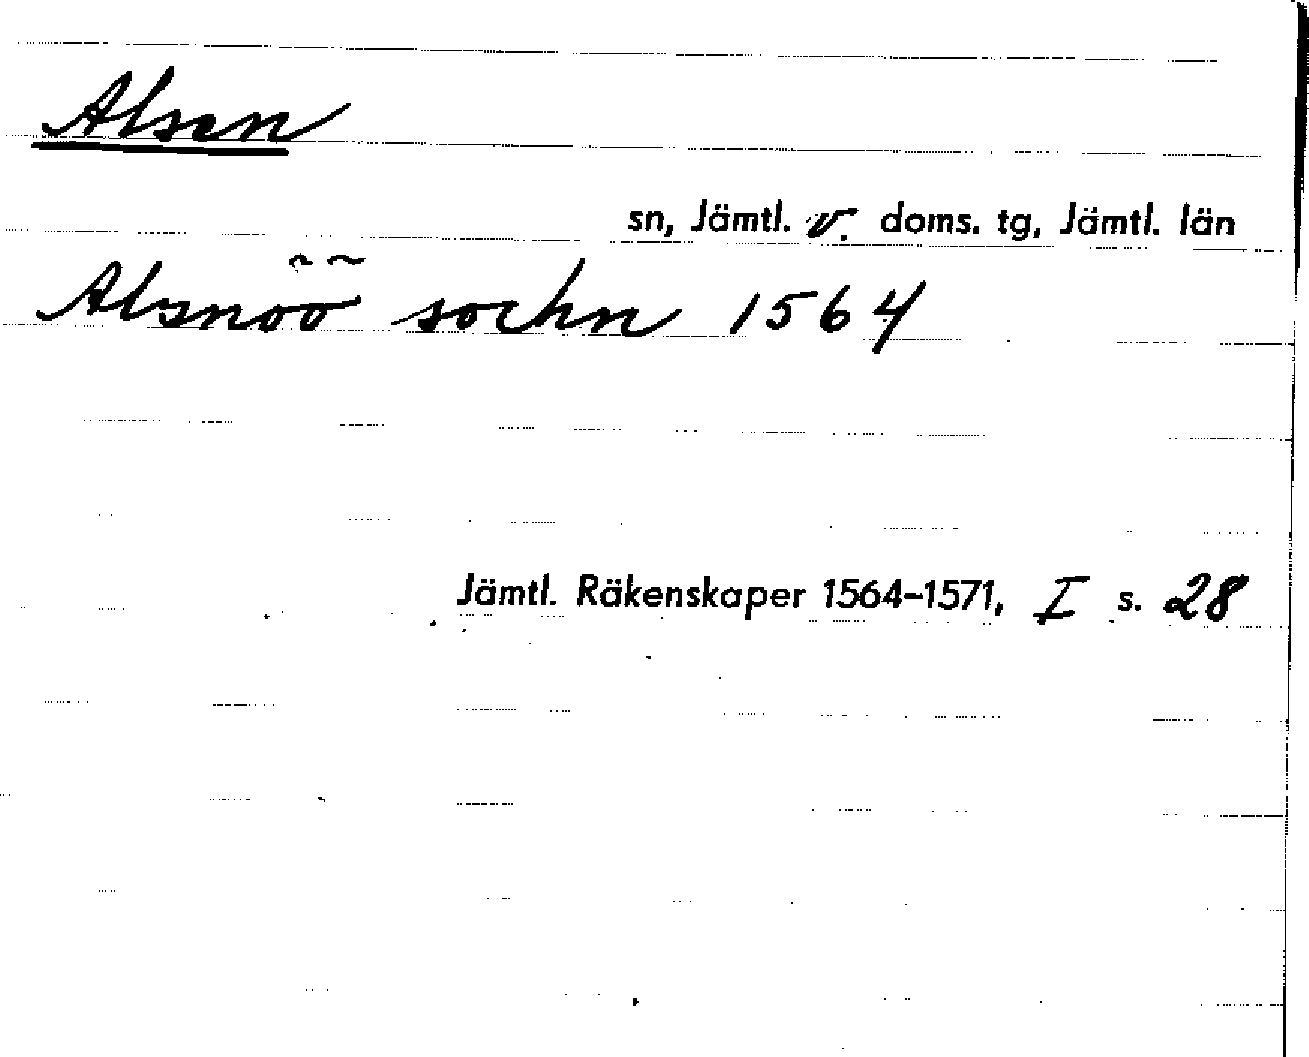 Alsen
sn, Jämtl. v. doms. tg, Jämtl. län
Alsnöö sochn 1564
Jämtl. Räkenskaper 1564-1571, I s. 28